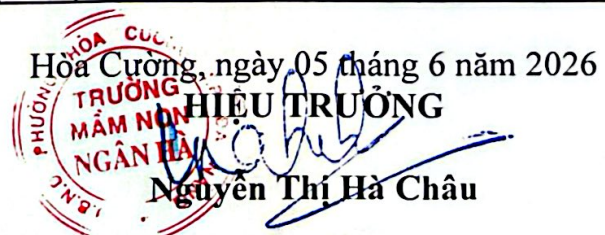 Hòa Cường, ngày 05 tháng 6 năm 2026
HIỆU TRƯỞNG
Nguyễn Thị Hà Châu
PHƯỜNG HÒA CƯỜNG
TRƯỜNG
MẦM NON
NGÂN HÀ